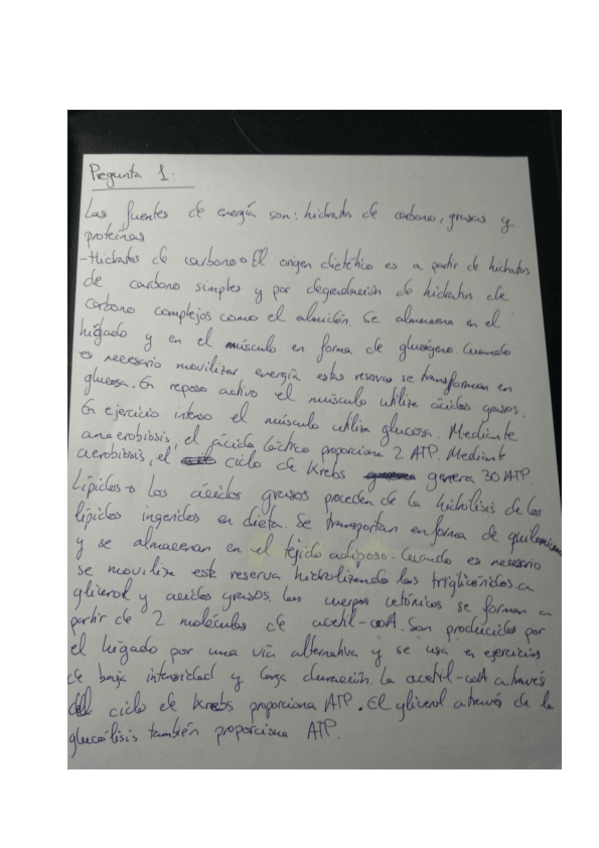 Pregunta 1:
Las fuentes de energía son: hidratos de carbono, grasas y
proteínas
-Hidratos de carbono→ El origen dietético es a partir de hidratos
de carbono simples y por degradación de hidratos de
carbono complejos como el almidón. Se almacena en el
hígado y en el músculo en forma de glucógeno. Cuando
es necesario movilizar energía estas reservas se transforman en
glucosa. En reposo activo el músculo utiliza ácidos grasos.
En ejercicio intenso el músculo utiliza glucosa. Mediante
anaerobiosis, el ácido láctico proporciona 2 ATP. Mediante
aerobiosis, el ciclo de Krebs genera 30 ATP.
Lípidos→ Los ácidos grasos proceden de la hidrólisis de los
lípidos ingeridos en dieta. Se transportan en forma de quilomicrones
y se almacenan en el tejido adiposo. Cuando es necesario
se moviliza esta reserva hidrolizando los triglicéridos a
glicerol y acidos grasos. Los cuerpos cetónicos se forman a
partir de 2 moléculas de acetil-coA. Son producidos por
el hígado por una vía alternativa y se usa en ejercicios
de baja intensidad y larga duración. La acetil-coA a través
del ciclo de Krebs proporciona ATP. El glicerol a través de la
glucólisis también proporciona ATP.